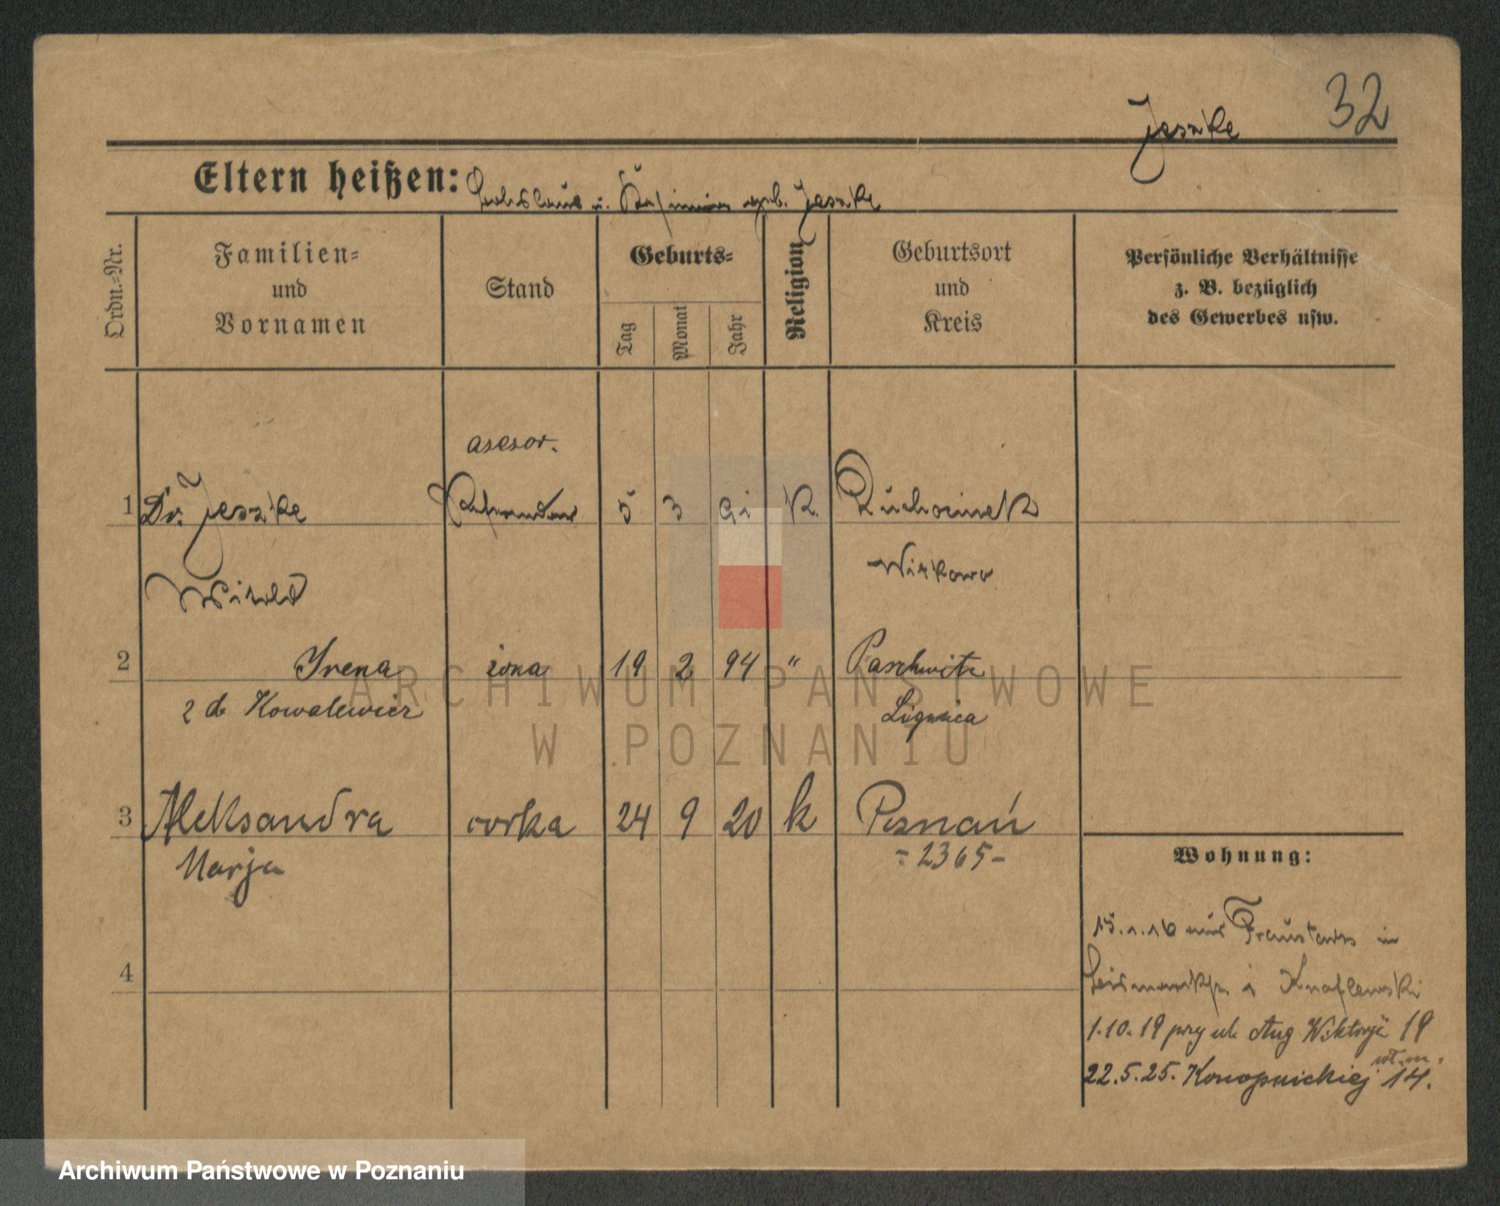 32
Jeszke
Eltern heißen: u. geb. Jeszke
Ordn.-Nr.
Familien-
und
Vornamen
Stand
Geburts-
Tag
Monat
Jahr
Religion
Geburtsort
und
Kreis
Persönliche Verhältnisse
z. B. bezüglich
des Gewerbes usw.
asesor.
1 Dr. Jeszke 5 3 91 K.
Witkowo
Witold
2 Irena żona 19 2 94 " Paschwitz
z d Kowalewicz Lignica
3 Aleksandra córka 24 9 20 k Poznań
Marja -2365-
Wohnung:
15.1.16 aus Fraustadt in
Knaflewski
4
1.10.19 przy ul. Aug Wiktorji 19
22.5.25. Konopnickiej 14.
ARCHIWUM PAŃSTWOWE
W POZNANIU
Archiwum Państwowe w Poznaniu